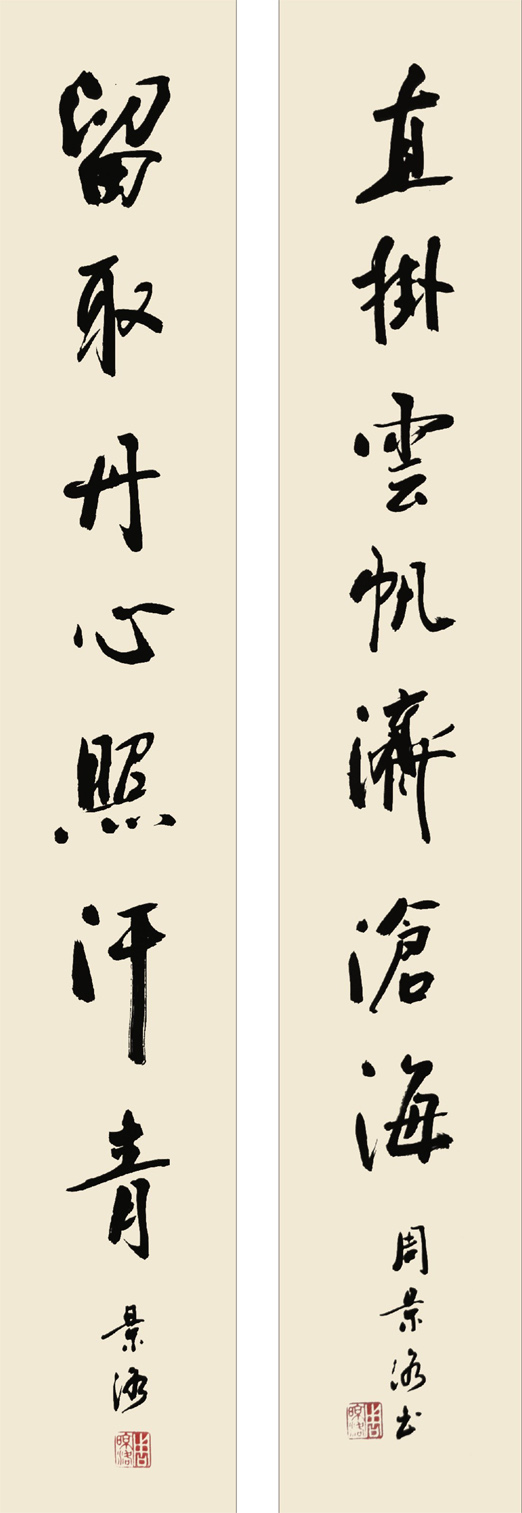 直掛雲帆濟滄海
周景洛书
留取丹心照汗青
景洛